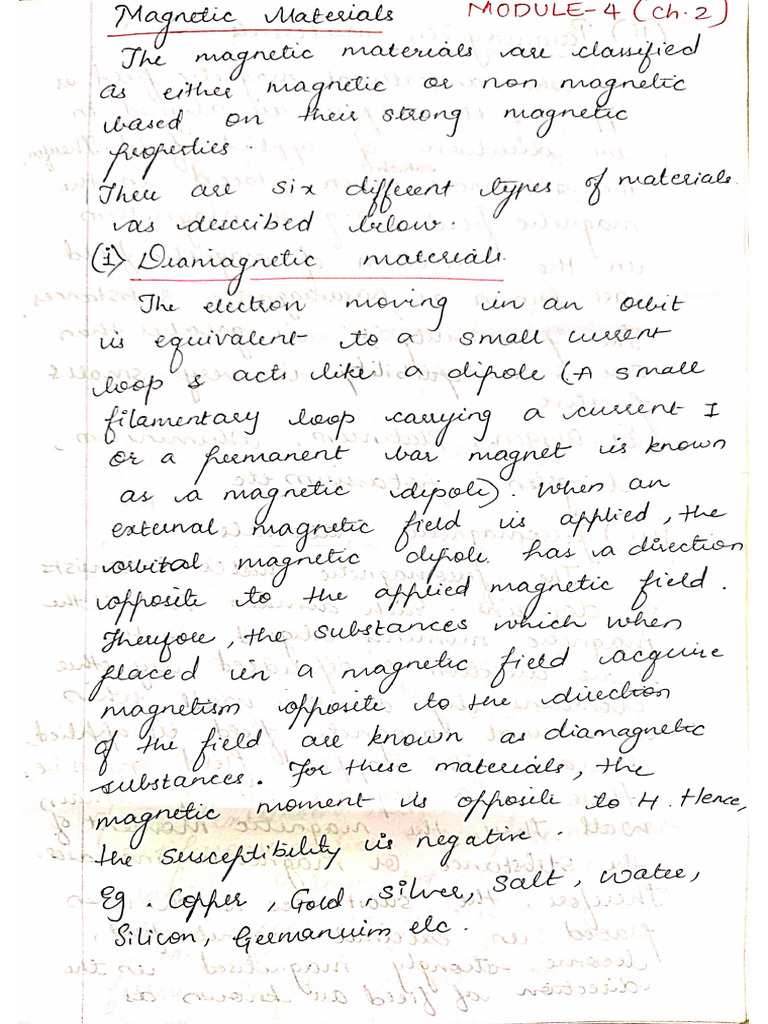 Magnetic Materials MODULE-4 (Ch.2)
The magnetic materials are classified
as either magnetic or non magnetic
based on their strong magnetic
properties.
There are six different types of materials
as described below.
(i) Diamagnetic materials.
The electron moving in an orbit
is equivalent to a small current
loop & acts like a dipole (A small
filamentary loop carrying a current I
or a permanent bar magnet is known
as a magnetic dipole). When an
external magnetic field is applied, the
orbital magnetic dipole has a direction
opposite to the applied magnetic field.
Therefore, the substances which when
placed in a magnetic field acquire
magnetism opposite to the direction
of the field are known as diamagnetic
substances. For these materials, the
magnetic moment is opposite to H. Hence,
the susceptibility is negative.
Eg. Copper, Gold, Silver, Salt, Water,
Silicon, Germanuim etc.